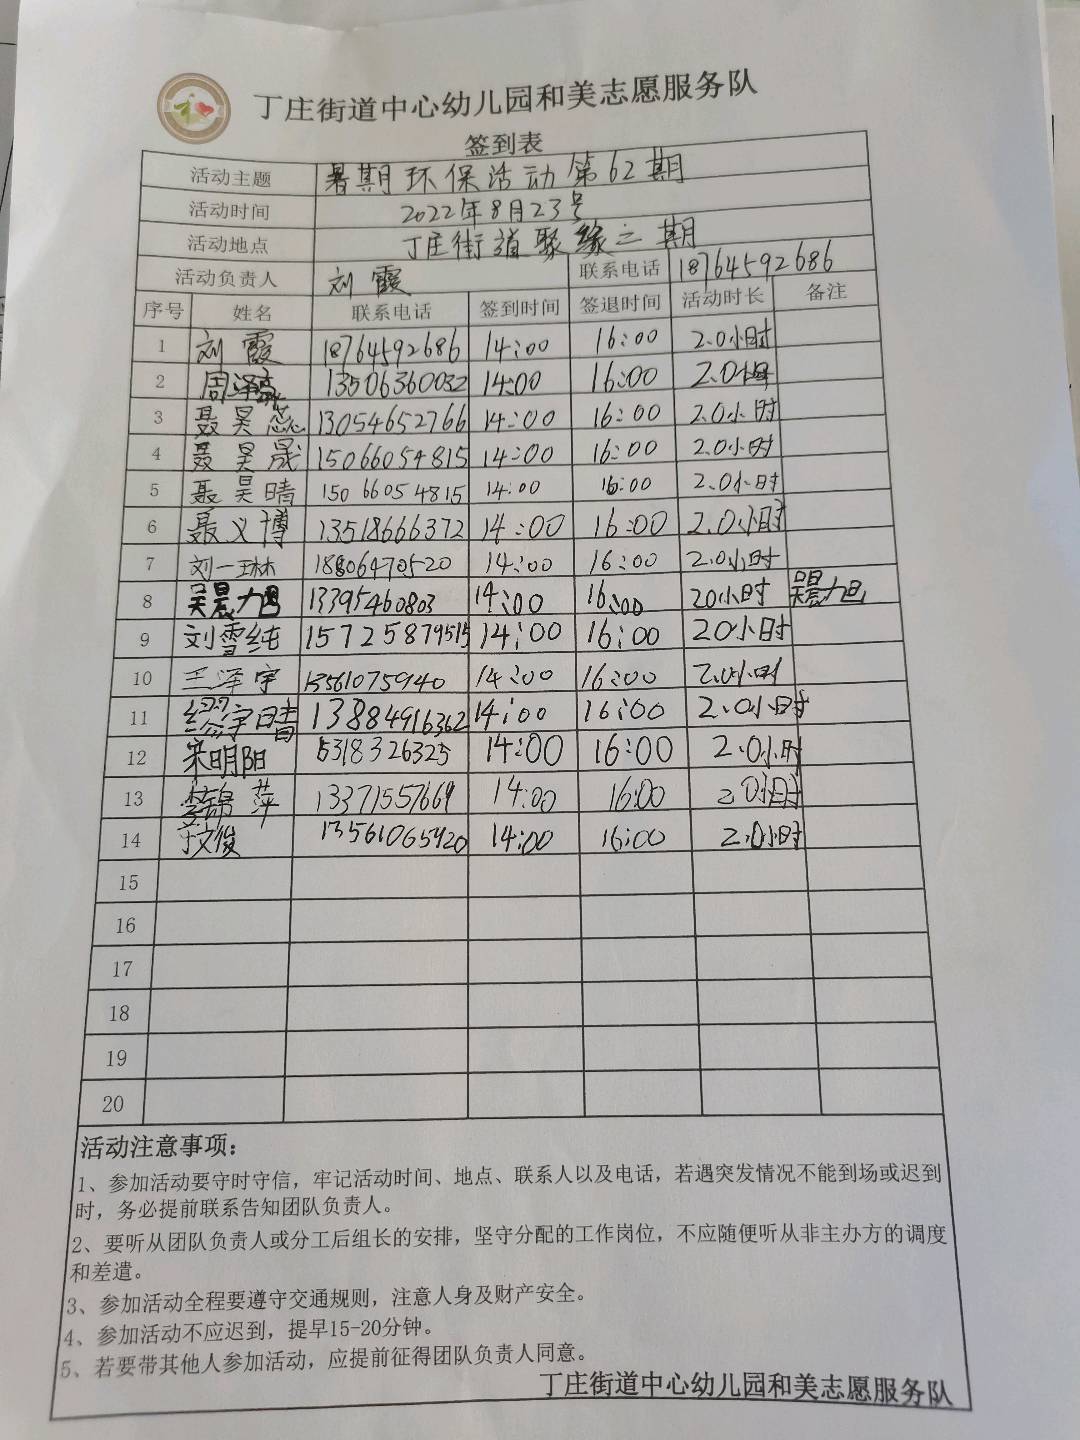 丁庄街道中心幼儿园和美志愿服务队
签到表
活动主题 暑期环保活动第62期
活动时间 2022年8月23号
活动地点 丁庄街道聚缘二期
活动负责人 刘霞 联系电话 18764592686
序号 姓名 联系电话 签到时间 签退时间 活动时长 备注
1 刘霞 18764592686 14:00 16:00 2.0小时
2 周泽 13506360032 14:00 16:00 2.0小时
3 聂昊蕊 13054652766 14:00 16:00 2.0小时
4 聂昊晟 15066054815 14:00 16:00 2.0小时
5 聂昊晴 15066054815 14:00 16:00 2.0小时
6 聂义博 13518666372 14:00 16:00 2.0小时
7 刘一琳 18806470520 14:00 16:00 2.0小时
8 吴晨旭 13395460803 14:00 16:00 20小时 吴晨旭
9 刘雪纯 15725879515 14:00 16:00 20小时
10 王泽宇 13561075940 14:00 16:00 2.0小时
11 宇晴 13884916362 14:00 16:00 2.0小时
12 宋明阳 15318326325 14:00 16:00 2.0小时
13 李锦萍 13371557669 14:00 16:00 2.0小时
14 于文俊 13561065920 14:00 16:00 2.0小时
15
16
17
18
19
20
活动注意事项：
1、参加活动要守时守信，牢记活动时间、地点、联系人以及电话，若遇突发情况不能到场或迟到
时，务必提前联系告知团队负责人。
2、要听从团队负责人或分工后组长的安排，坚守分配的工作岗位，不应随便听从非主办方的调度
和差遣。
3、参加活动全程要遵守交通规则，注意人身及财产安全。
4、参加活动不应迟到，提早15-20分钟。
5、若要带其他人参加活动，应提前征得团队负责人同意。
丁庄街道中心幼儿园和美志愿服务队